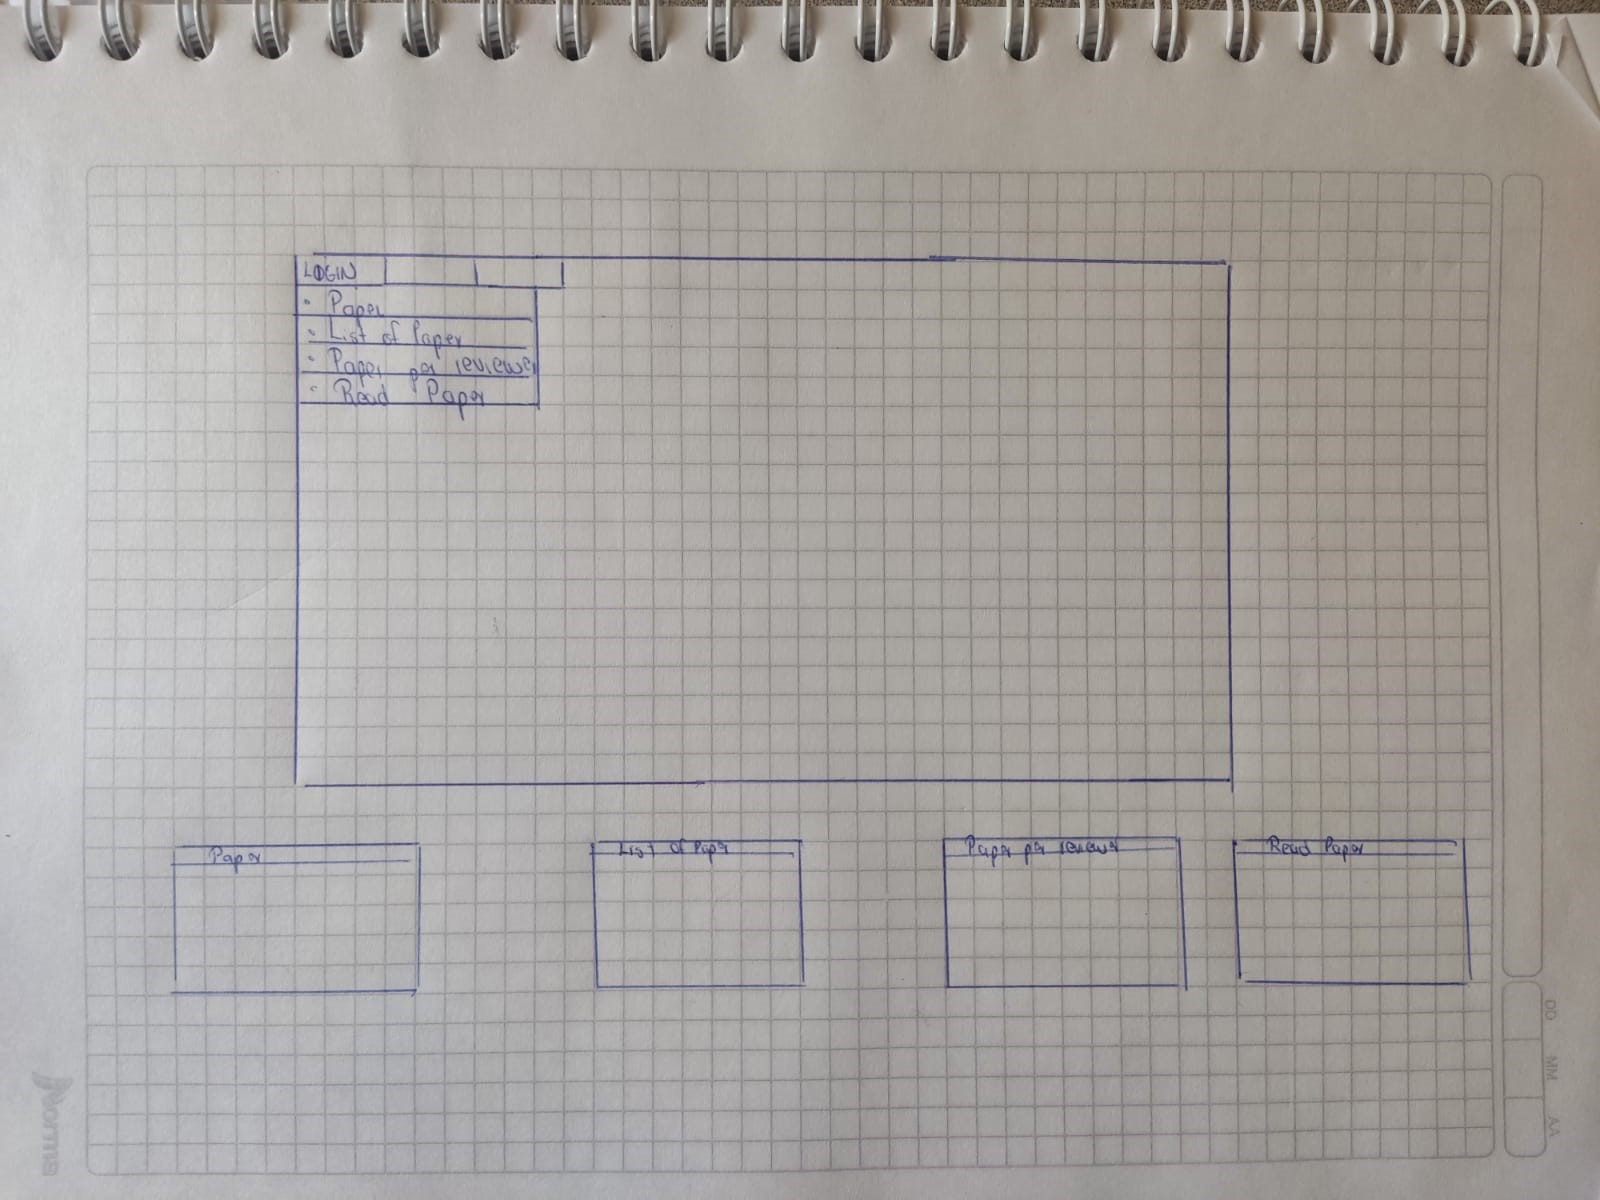 LOGIN
• Paper
• List of Paper
• Paper per reviewer
• Read Paper
Paper
List of Paper
Paper per reviewer
Read Paper
DD
MM
AA
Norma